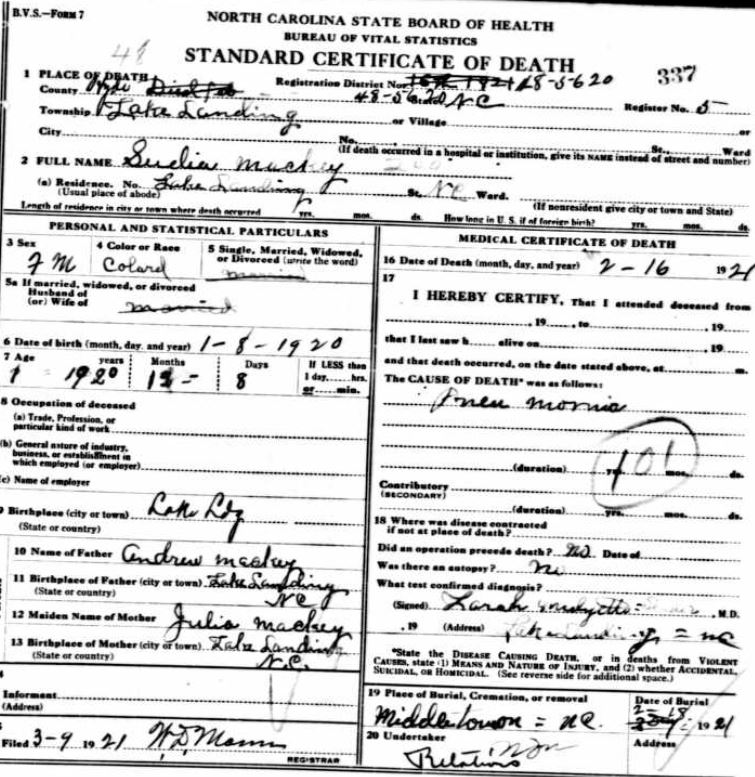 B.V.S.—FORM 7
NORTH CAROLINA STATE BOARD OF HEALTH
BUREAU OF VITAL STATISTICS
48
STANDARD CERTIFICATE OF DEATH
337
1 PLACE OF DEATH
Registration District No. 48-5620
County Hyde
48-5620 State NC
Register No. 5
Township Lake Landing or Village or
City No. St. Ward
(If death occurred in a hospital or institution, give its NAME instead of street and number)
2 FULL NAME Sudia Mackey
(a) Residence. No. Lake Landing St. NC Ward.
(Usual place of abode) (If nonresident give city or town and State)
Length of residence in city or town where death occurred yrs. mos. ds. How long in U. S. if of foreign birth? yrs. mos. ds.
PERSONAL AND STATISTICAL PARTICULARS
3 Sex
4 Color or Race
5 Single, Married, Widowed, or Divorced (write the word)
F M
Colard
married
5a If married, widowed, or divorced
Husband of
(or) Wife of married
6 Date of birth (month, day, and year) 1-8-1920
7 Age years Months Days If LESS than
1 day, hrs.
or min.
1 = 1920 12 = 8
8 Occupation of deceased
(a) Trade, Profession, or
particular kind of work
(b) General nature of industry,
business, or establishment in
which employed (or employer)
(c) Name of employer
9 Birthplace (city or town) Lake Ldg
(State or country)
10 Name of Father Andrew mackey
11 Birthplace of Father (city or town) Lake Landing
(State or country) NC
12 Maiden Name of Mother Julia mackey
13 Birthplace of Mother (city or town) Lake Landing
(State or country) N.C.
Informant
(Address)
Filed 3-9 1921 W.D. Mann
REGISTRAR
MEDICAL CERTIFICATE OF DEATH
16 Date of Death (month, day, and year) 2-16 1921
17
I HEREBY CERTIFY, That I attended deceased from
, 19 , to , 19
that I last saw h alive on 19
and that death occurred, on the date stated above, at m.
The CAUSE OF DEATH* was as follows:
Pneu monia
101
(duration) yrs. mos. ds.
Contributory
(SECONDARY)
(duration) yrs. mos. ds.
18 Where was disease contracted
if not at place of death?
Did an operation precede death? No Date of
Was there an autopsy? no
What test confirmed diagnosis?
(Signed) Sarah , M.D.
, 19 (Address) Lake Landing = nc
*State the DISEASE CAUSING DEATH, or in deaths from VIOLENT
CAUSES, state (1) MEANS AND NATURE OF INJURY, and (2) whether ACCIDENTAL,
SUICIDAL, OR HOMICIDAL. (See reverse side for additional space.)
19 Place of Burial, Cremation, or removal
Date of Burial
Middletown = NC.
2-18 1921
20 Undertaker
Address
Relations